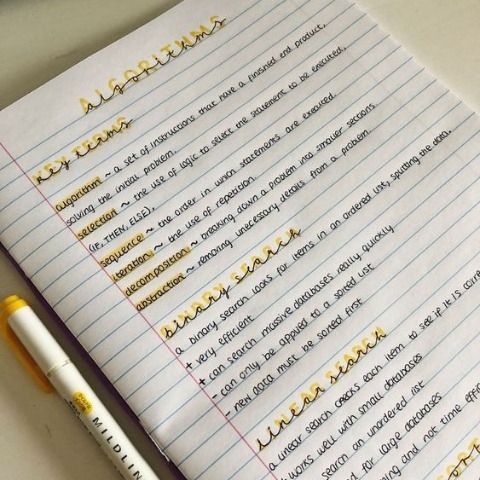 ALGORITHMS
algorithms
KEY TERMS
key terms
algorithm ~ a set of instructions that have a finished end product,
solving the initial problem.
selection ~ the use of logic to select the statement to be executed,
(IF, THEN, ELSE),
sequence ~ the order in which statements are executed.
iteration ~ the use of repetition.
decomposition ~ breaking down a problem into smaller sections
abstraction ~ removing unnecessary details from a problem.
BINARY SEARCH
binary search
a binary search looks for items in an ordered list, splitting the data.
+ very efficient
+ can search massive databases really quickly
- can only be applied to a sorted list
- new data must be sorted first
LINEAR SEARCH
linear search
a linear search checks each item to see if it is
works well with small databases
search an unordered list
for large databases
and not time
MILDLIN